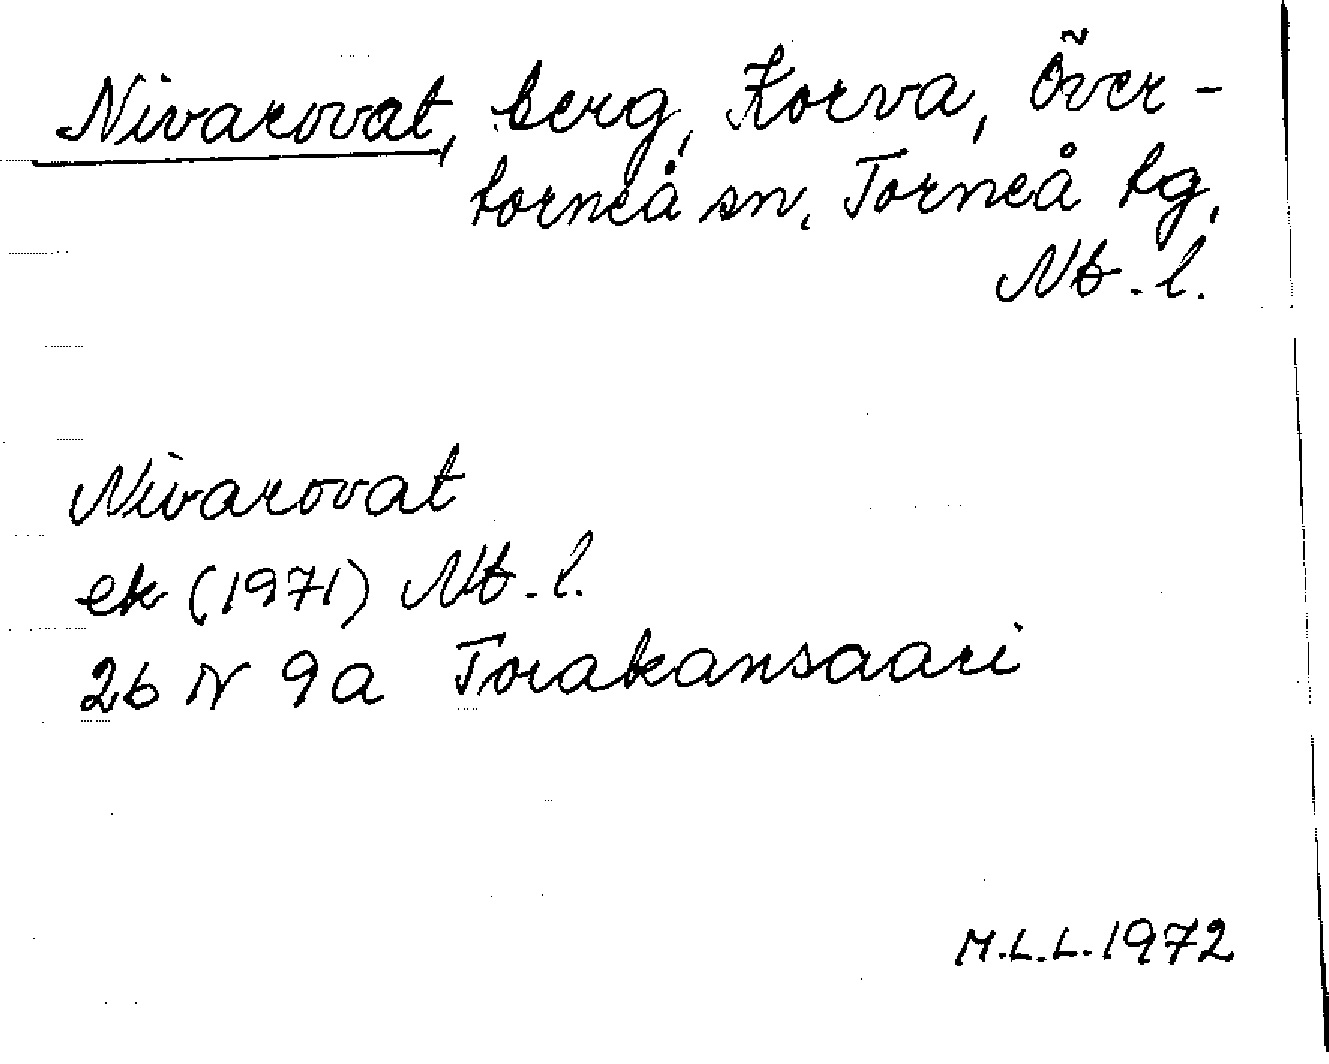 Nivarovat, berg, Korva, Över-
torneå sn, Torneå tg,
Nb. l.
Nivarovat
ek (1971) Nb. l.
26 N 9a Torakansaari
M.L.L. 1972